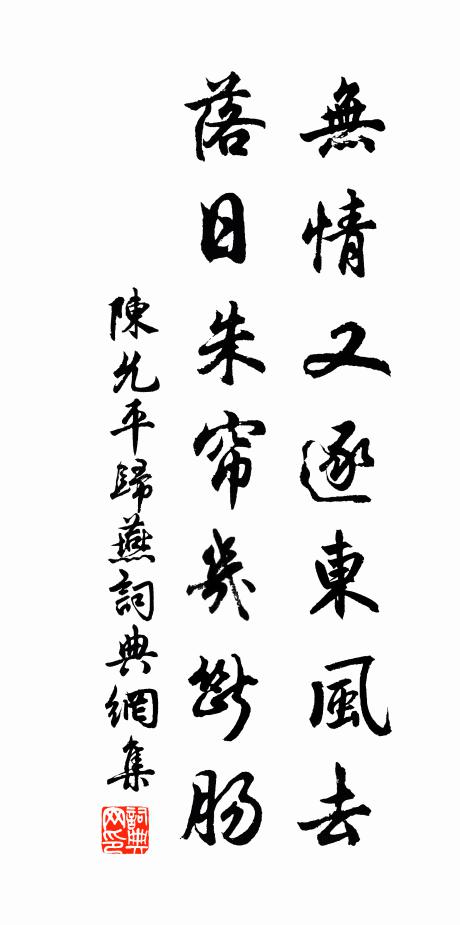 無情又逐東風去
落日朱帘幾斷腸
陳允平歸燕詞典網集
詞典網印